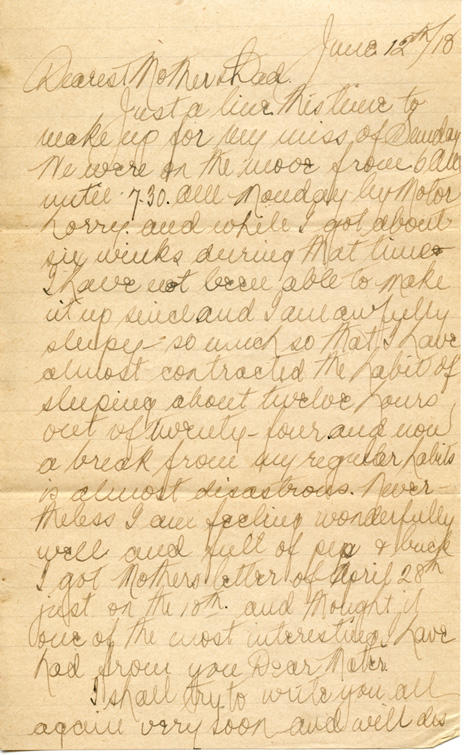 June 12th/18
Dearest Mother & Dad.
Just a line this time to
make up for my miss of Sunday
We were on the move from 6 AM
until 7.30. AM Monday by Motor
Lorry. and while I got about
six winks during that time
I have not been able to make
it up since and I am awfully
sleepy - so much so that I have
almost contracted the habit of
sleeping about twelve hours
out of twenty-four and now
a break from my regular habits
is almost disastrous. Never-
theless I am feeling wonderfully
well and full of pep & buck
I got Mothers letter of April 28th
just on the 10th. and thought it
one of the most interesting I have
had from you Dear Mater.
I shall try to write you all
again very soon and will dis